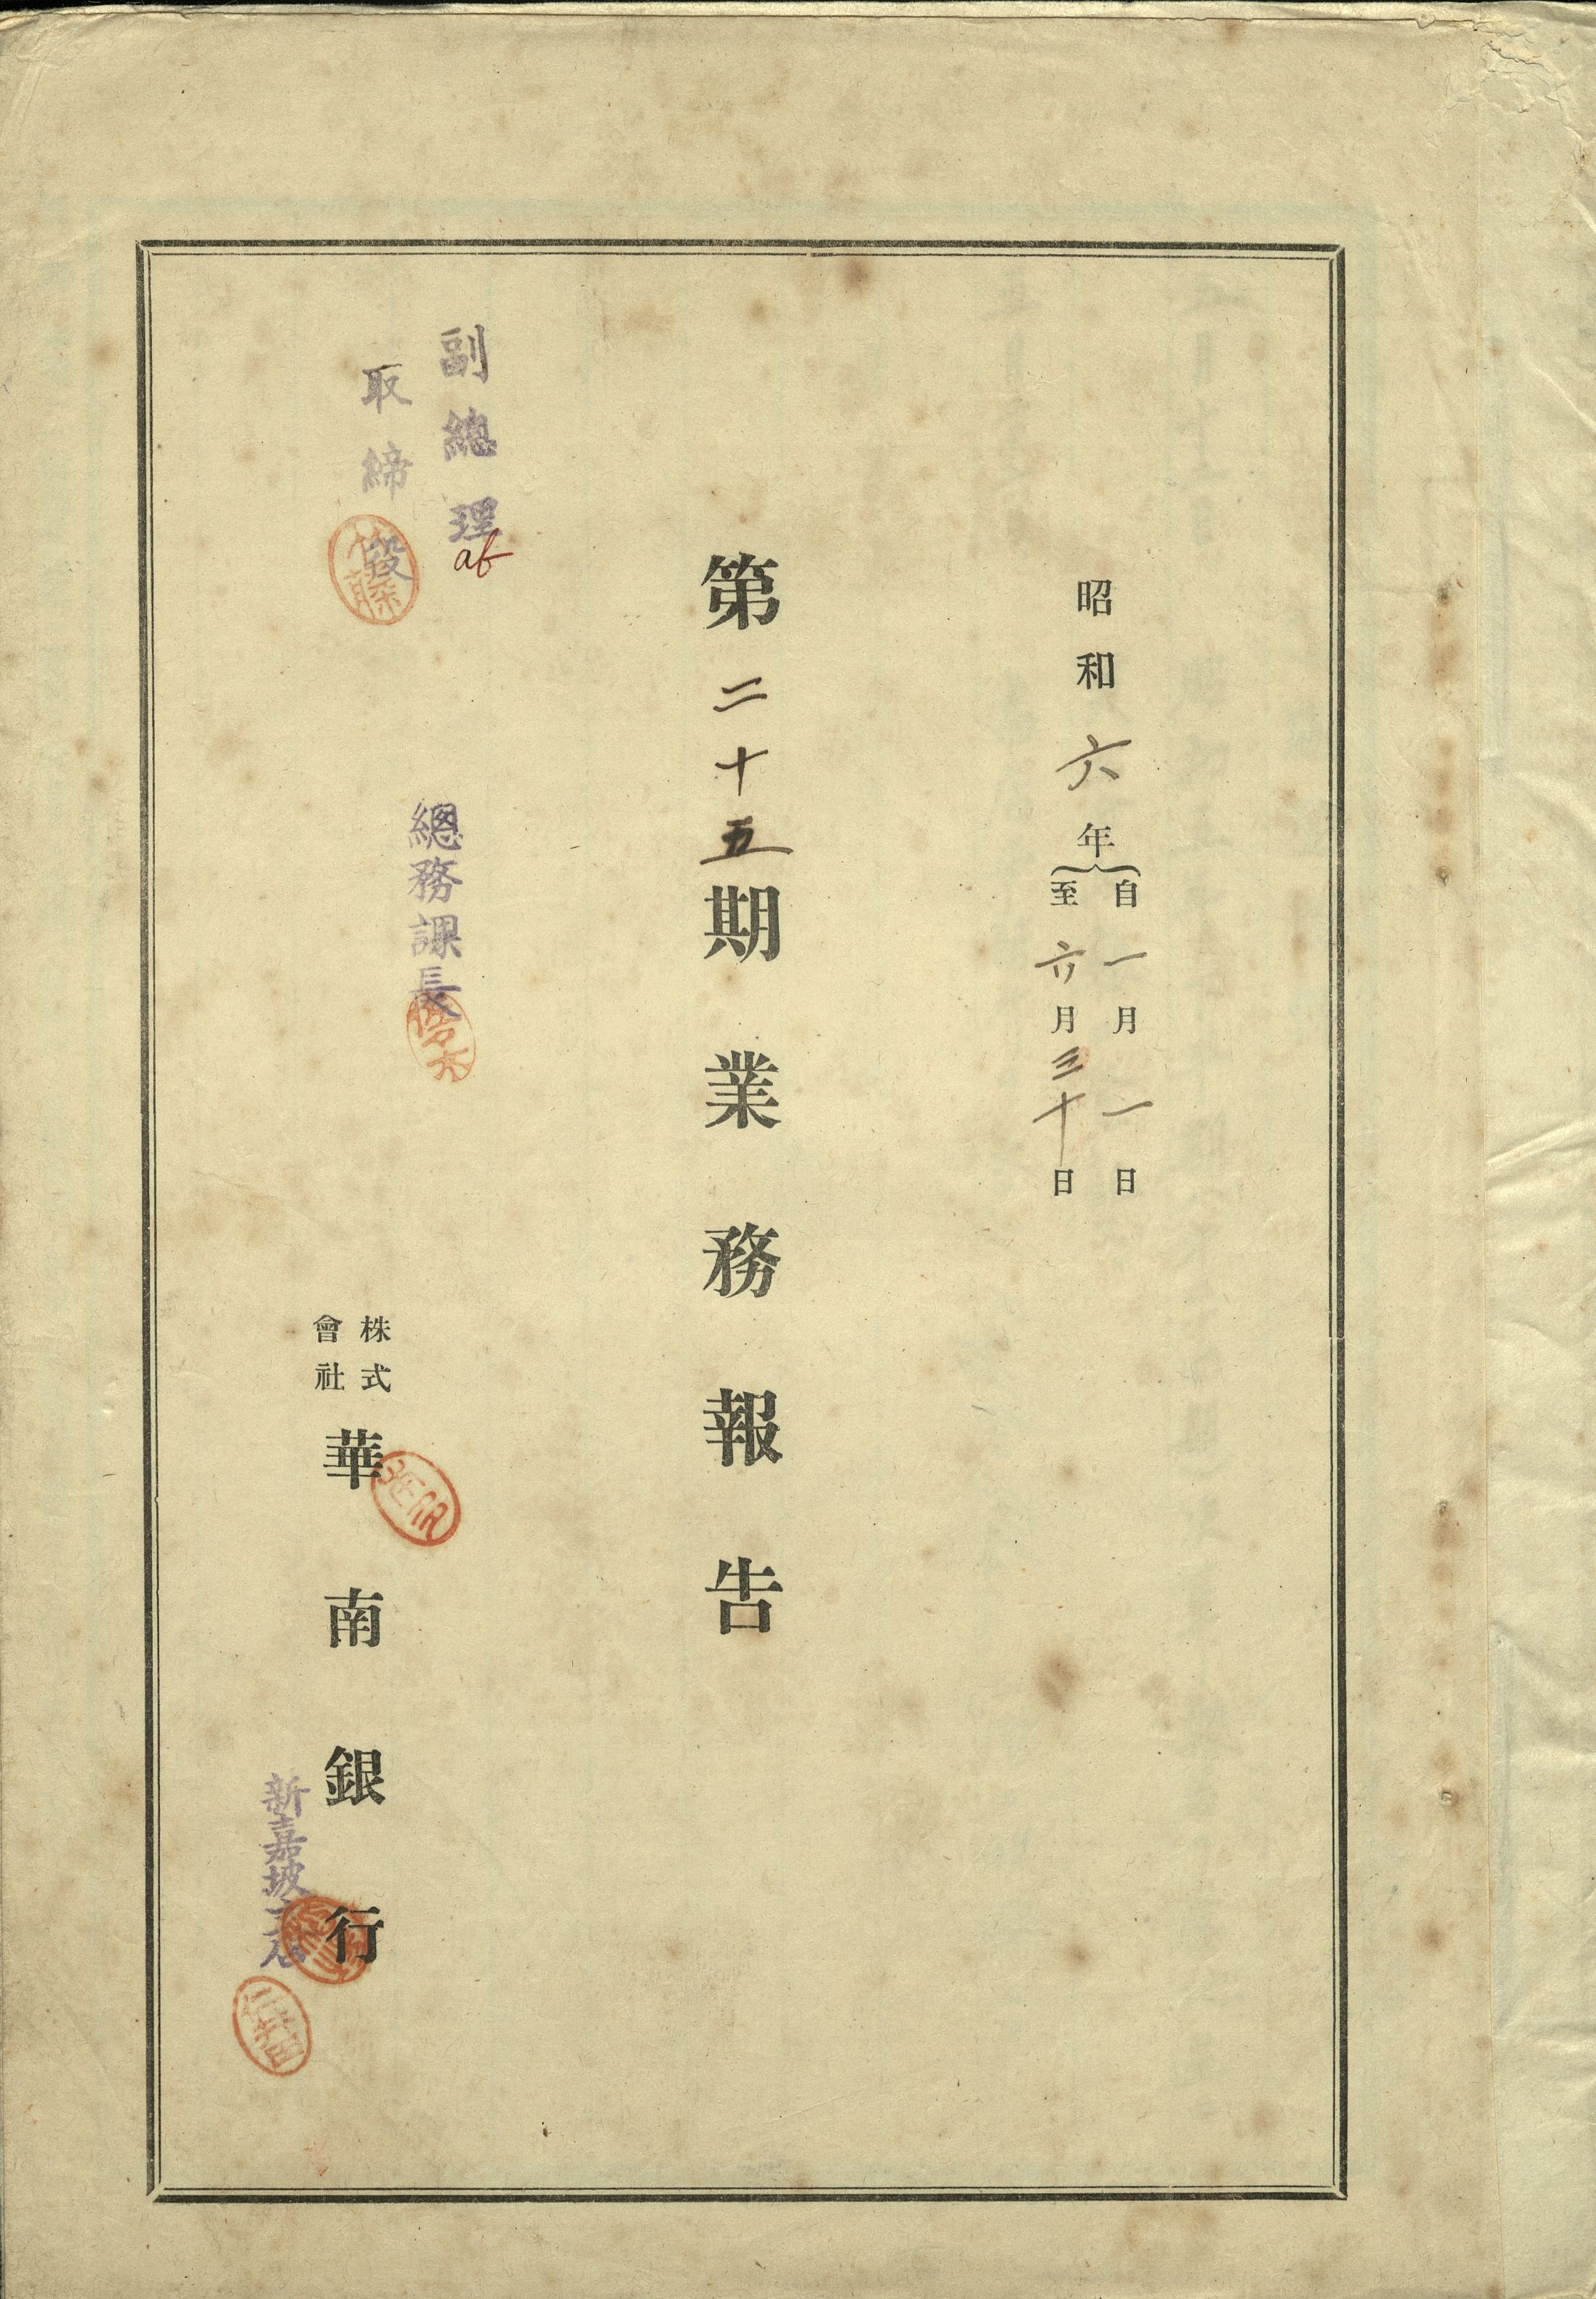 昭和六年
自一月一日
至六月三十日
第二十五期業務報告
副總理
af
取締役
總務課長
株式
會社
華南銀行
新嘉坡支店